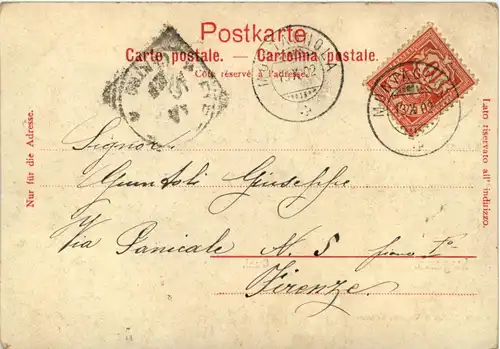 Postkarte
Carte postale. — Cartolina postale.
Côté réservé à l'adresse.
MONTAGNOLA
MONTAGNOLA
Nur für die Adresse.
Lato riservato all' indirizzo.
Signor
Guntoli Giuseppe
Via Panicale N. 5 piano 1º
Firenze.